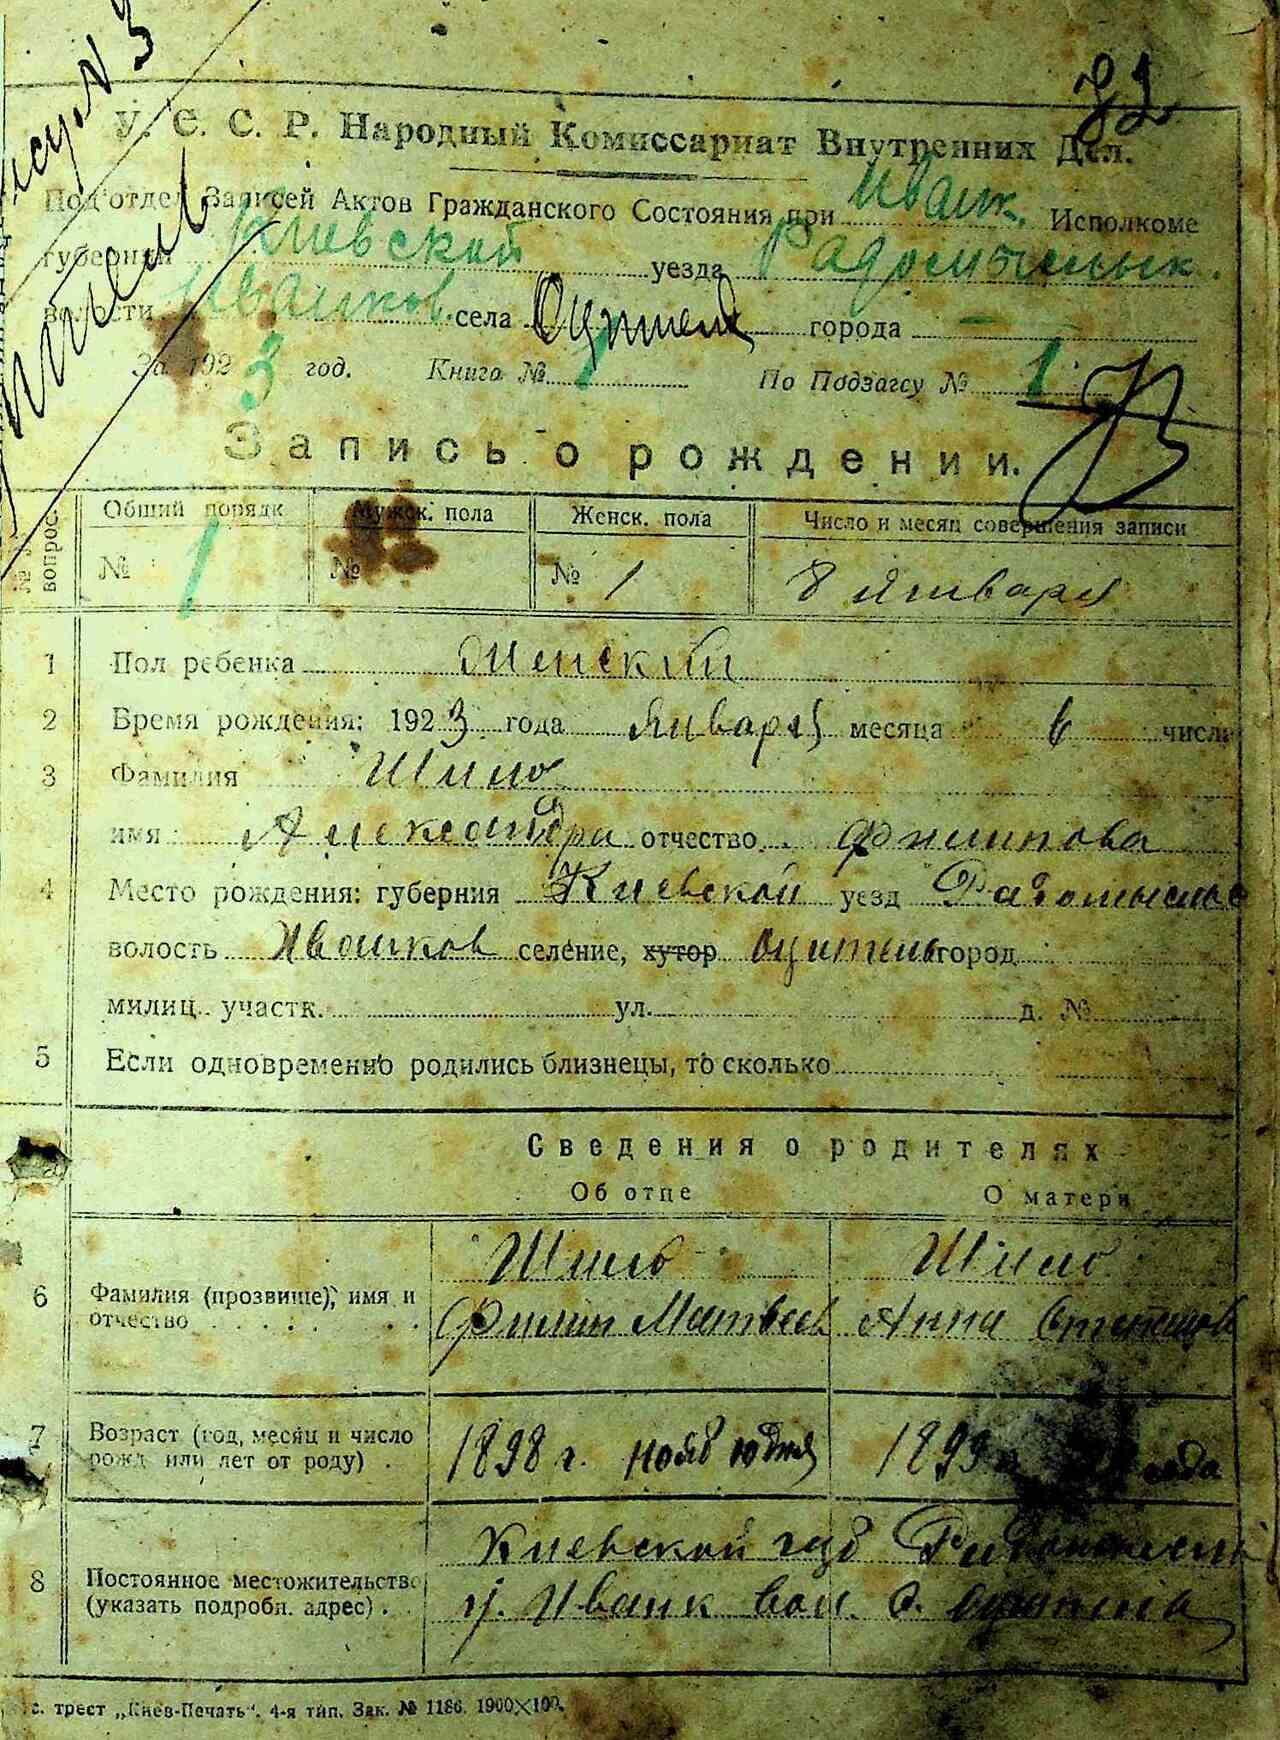 32
У. С. С. Р. Народный Комиссариат Внутренних Дел.
Под'отдел Записей Актов Гражданского Состояния при Иванк. Исполкоме
губернии Киевской уезда Радомысльск.
волости Иванков. села Оцители города —
За 1923 год. Книга № 1 По Подзагсу № 1
Запись о рождении.
№ № вопрос. Общий порядк Мужск. пола Женск. пола Число и месяц совершения записи
№ 1 № № 1 8 Января
1 Пол ребенка Женский
2 Время рождения: 1923 года Января месяца 6 числа
3 Фамилия Шило
имя Александра отчество Филипова
4 Место рождения: губерния Киевской уезд Радомысль
волость Иванков селение, хутор Оцитель город
милиц. участк. ул. д. №
5 Если одновременно родились близнецы, то сколько
Сведения о родителях
Об отце О матери
6 Фамилия (прозвище), имя и отчество Шило Шило
Филип Матвеев Анна Степанов
7 Возраст (год, месяц и число рожд. или лет от роду) 1898 г. нояб 1899
8 Постоянное местожительство (указать подробн. адрес) Киевской губ Радомысль
у. Иванк вол. с.
с. трест „Киев-Печать“. 4-я тип. Зак. № 1186. 1900×100.